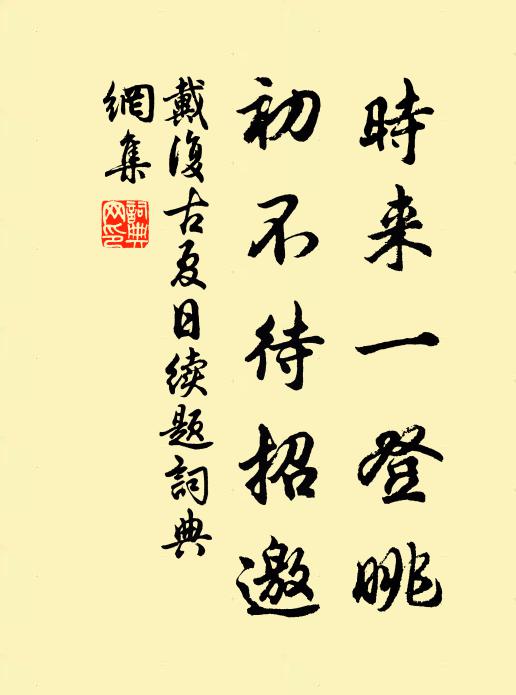 時来一登眺
初不待招邀
戴復古夏日续題詞典
網集
詞典網印